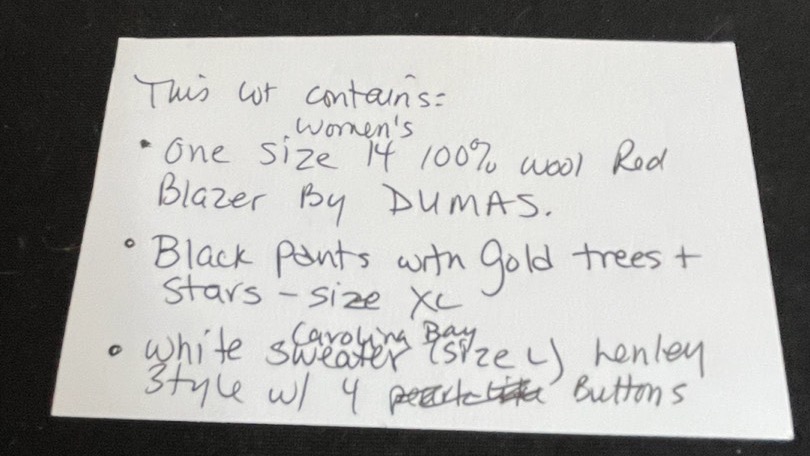 This lot contains:
women's
• One size 14 100% wool Red
Blazer By DUMAS.
• Black pants with gold trees +
Stars - size XL
Carolina Bay
• white sweater (size L) henley
Style w/ 4 Buttons